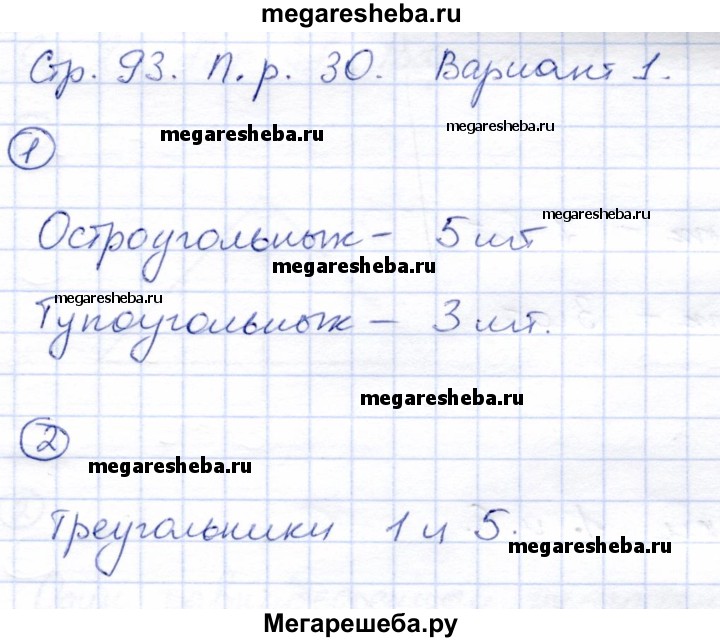 megaresheba.ru
Стр. 93. П. р. 30. Вариант 1.
megaresheba.ru
megaresheba.ru
1
megaresheba.ru
Остроугольных - 5 шт
megaresheba.ru
megaresheba.ru
Тупоугольных - 3 шт.
megaresheba.ru
2
megaresheba.ru
Треугольники 1 и 5.
megaresheba.ru
Мегарешеба.ру